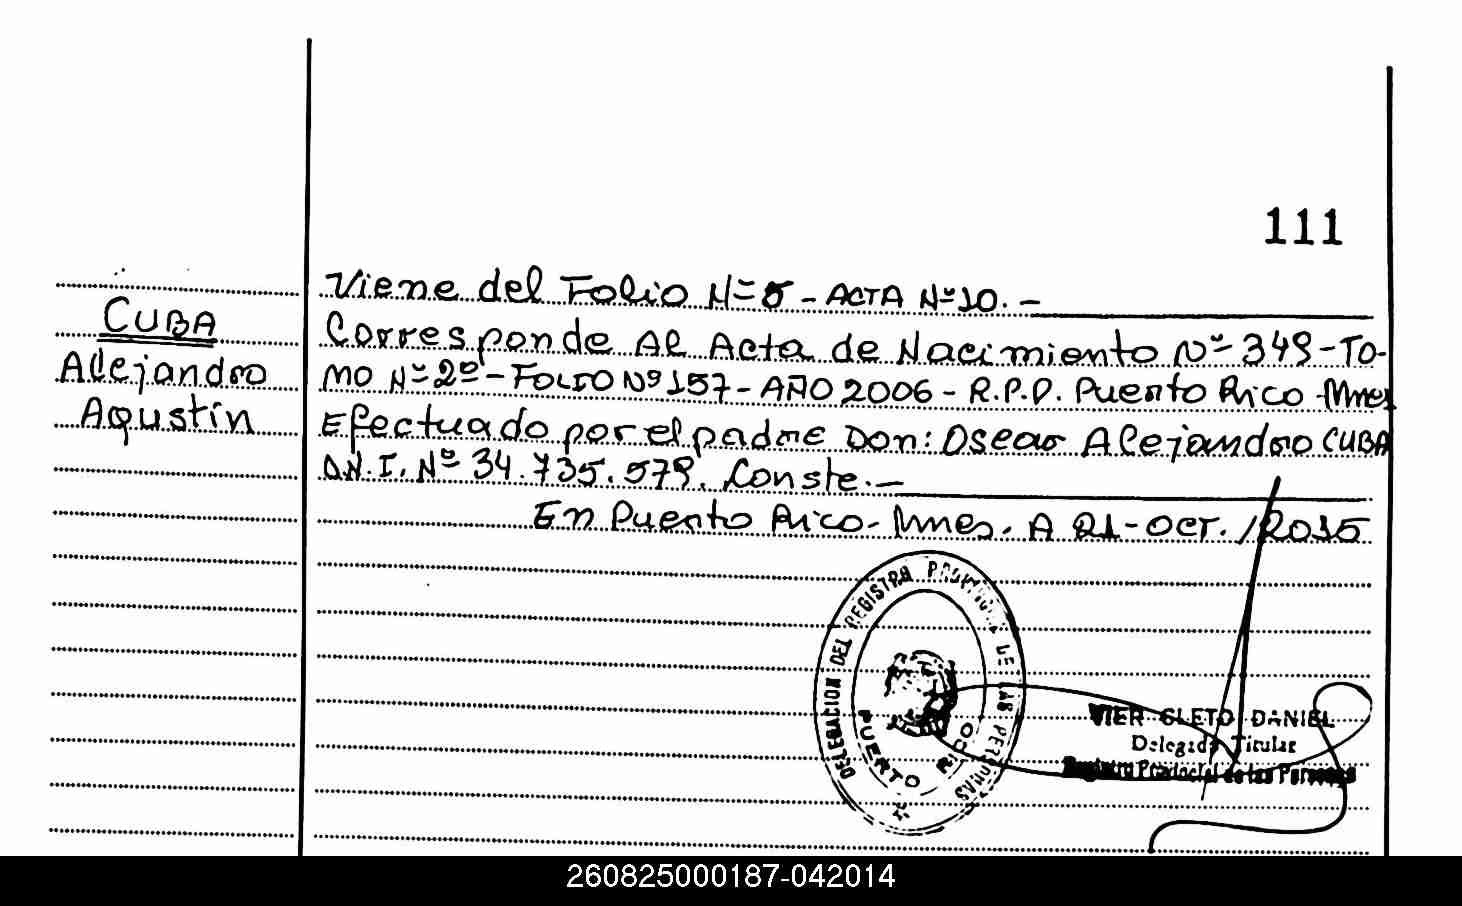 111
Viene del Folio Nº 5 - ACTA Nº 10. -
CUBA
Alejandro
Agustín
Corresponde Al Acta de Nacimiento Nº 349 - TO-
MO Nº 2º - FOLIO Nº 157 - AÑO 2006 - R.P.P. Puerto Rico - Mnes
Efectuado por el padre Don: Oscar Alejandro CUBA
D.N.I. Nº 34.735.579. Conste. -
En Puerto Rico - Mnes. A 21 - OCT. / 2015
DELEGACION DEL REGISTRO PROVINCIAL DE LAS PERSONAS
PUERTO RICO
VIER CLETO DANIEL
Delegado Titular
Registro Provincial de las Personas
260825000187-042014